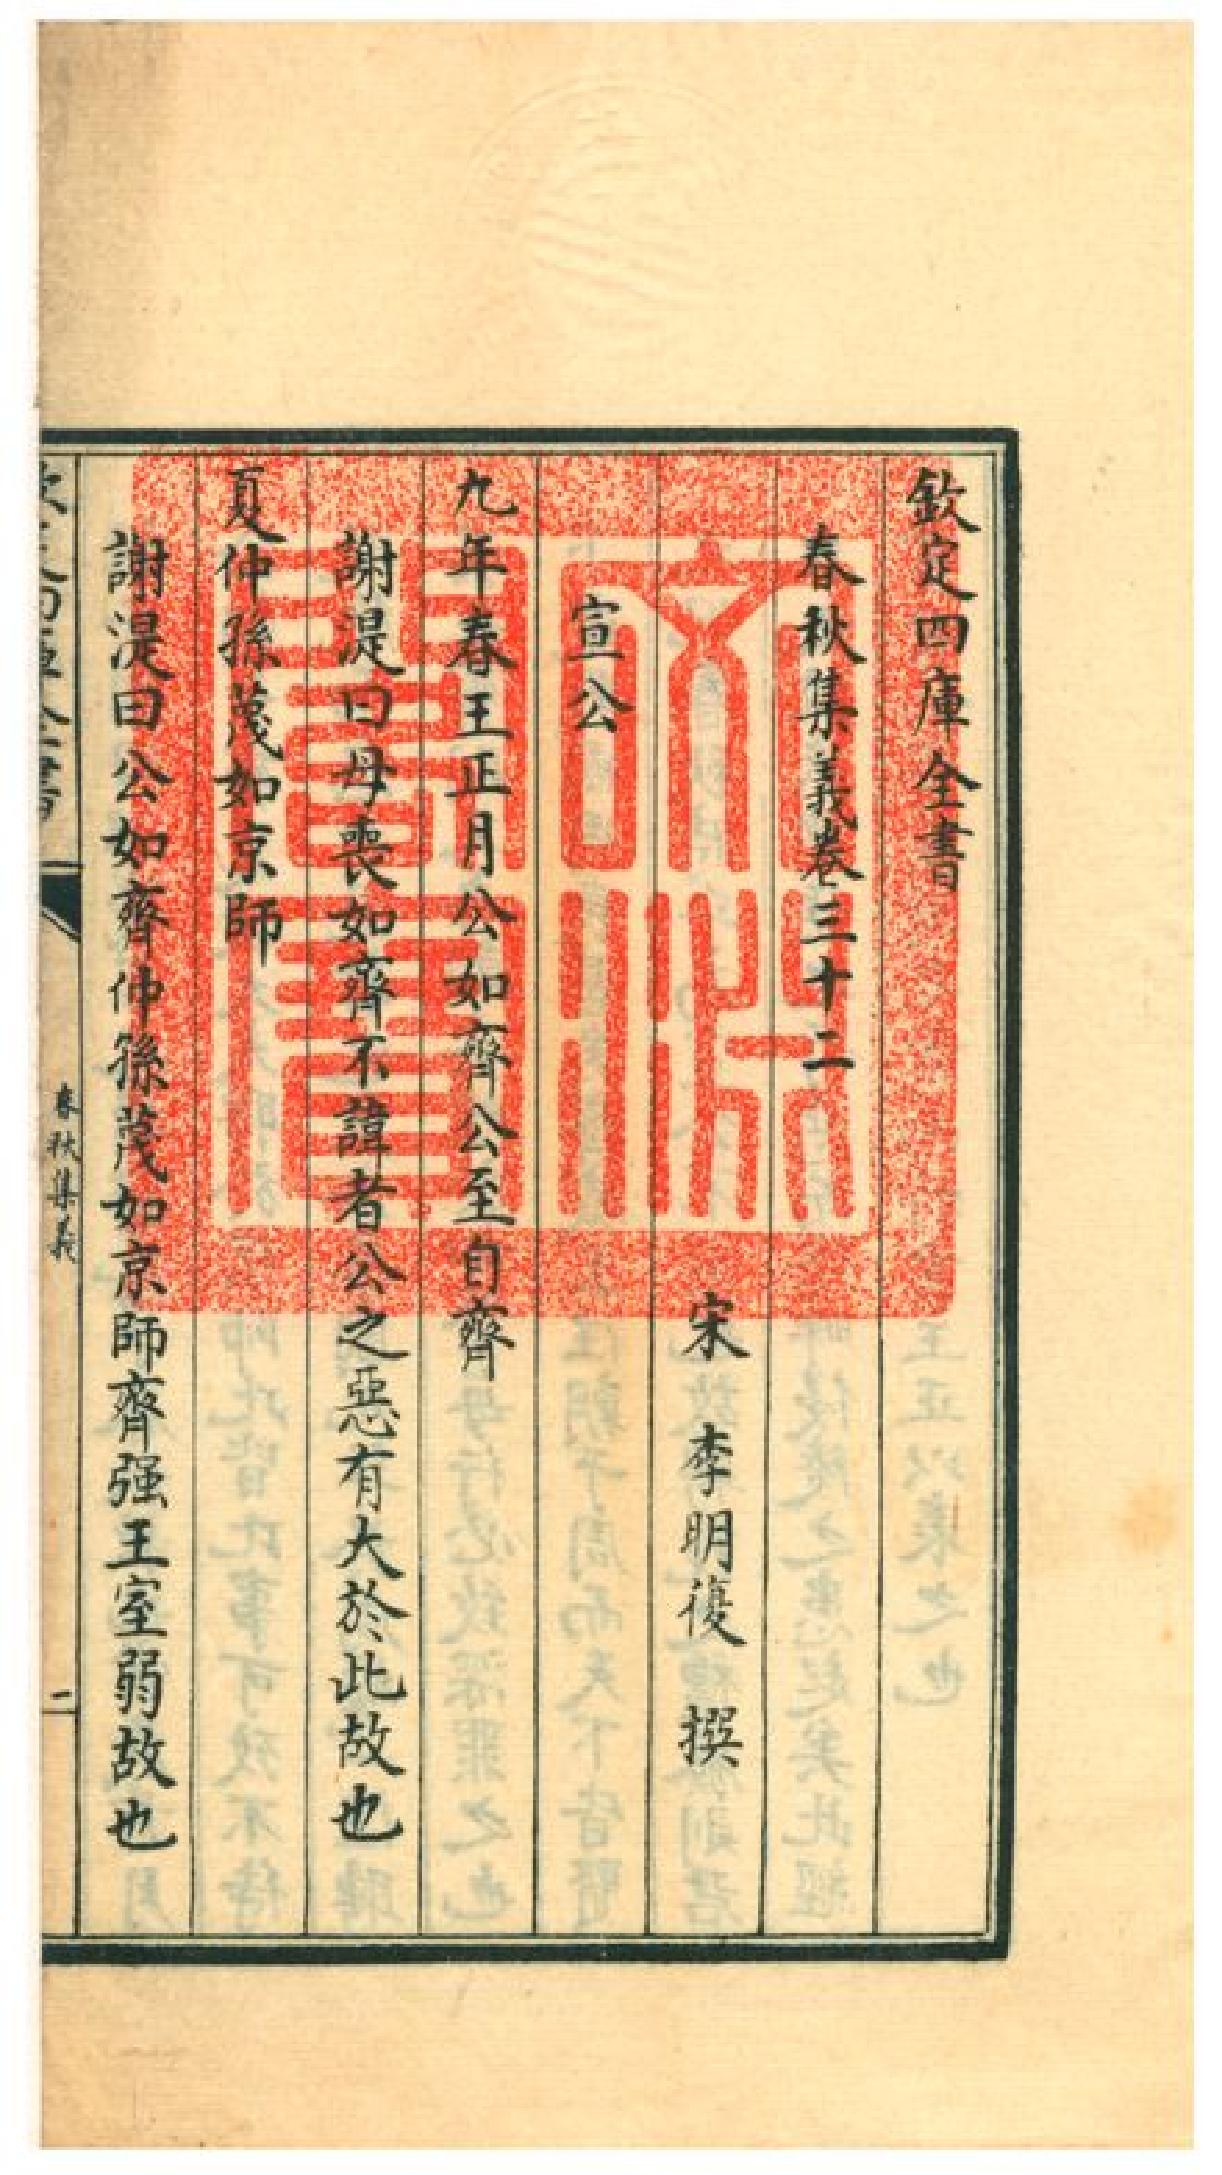 欽定四庫全書
春秋集義卷三十二
宋 李明復 撰
宣公
九年春王正月公如齊公至自齊
謝湜曰母喪如齊不諱者公之惡有大於此故也
夏仲孫蔑如京師
謝湜曰公如齊仲孫蔑如京師齊强王室弱故也
春秋集義
二
文淵閣寶